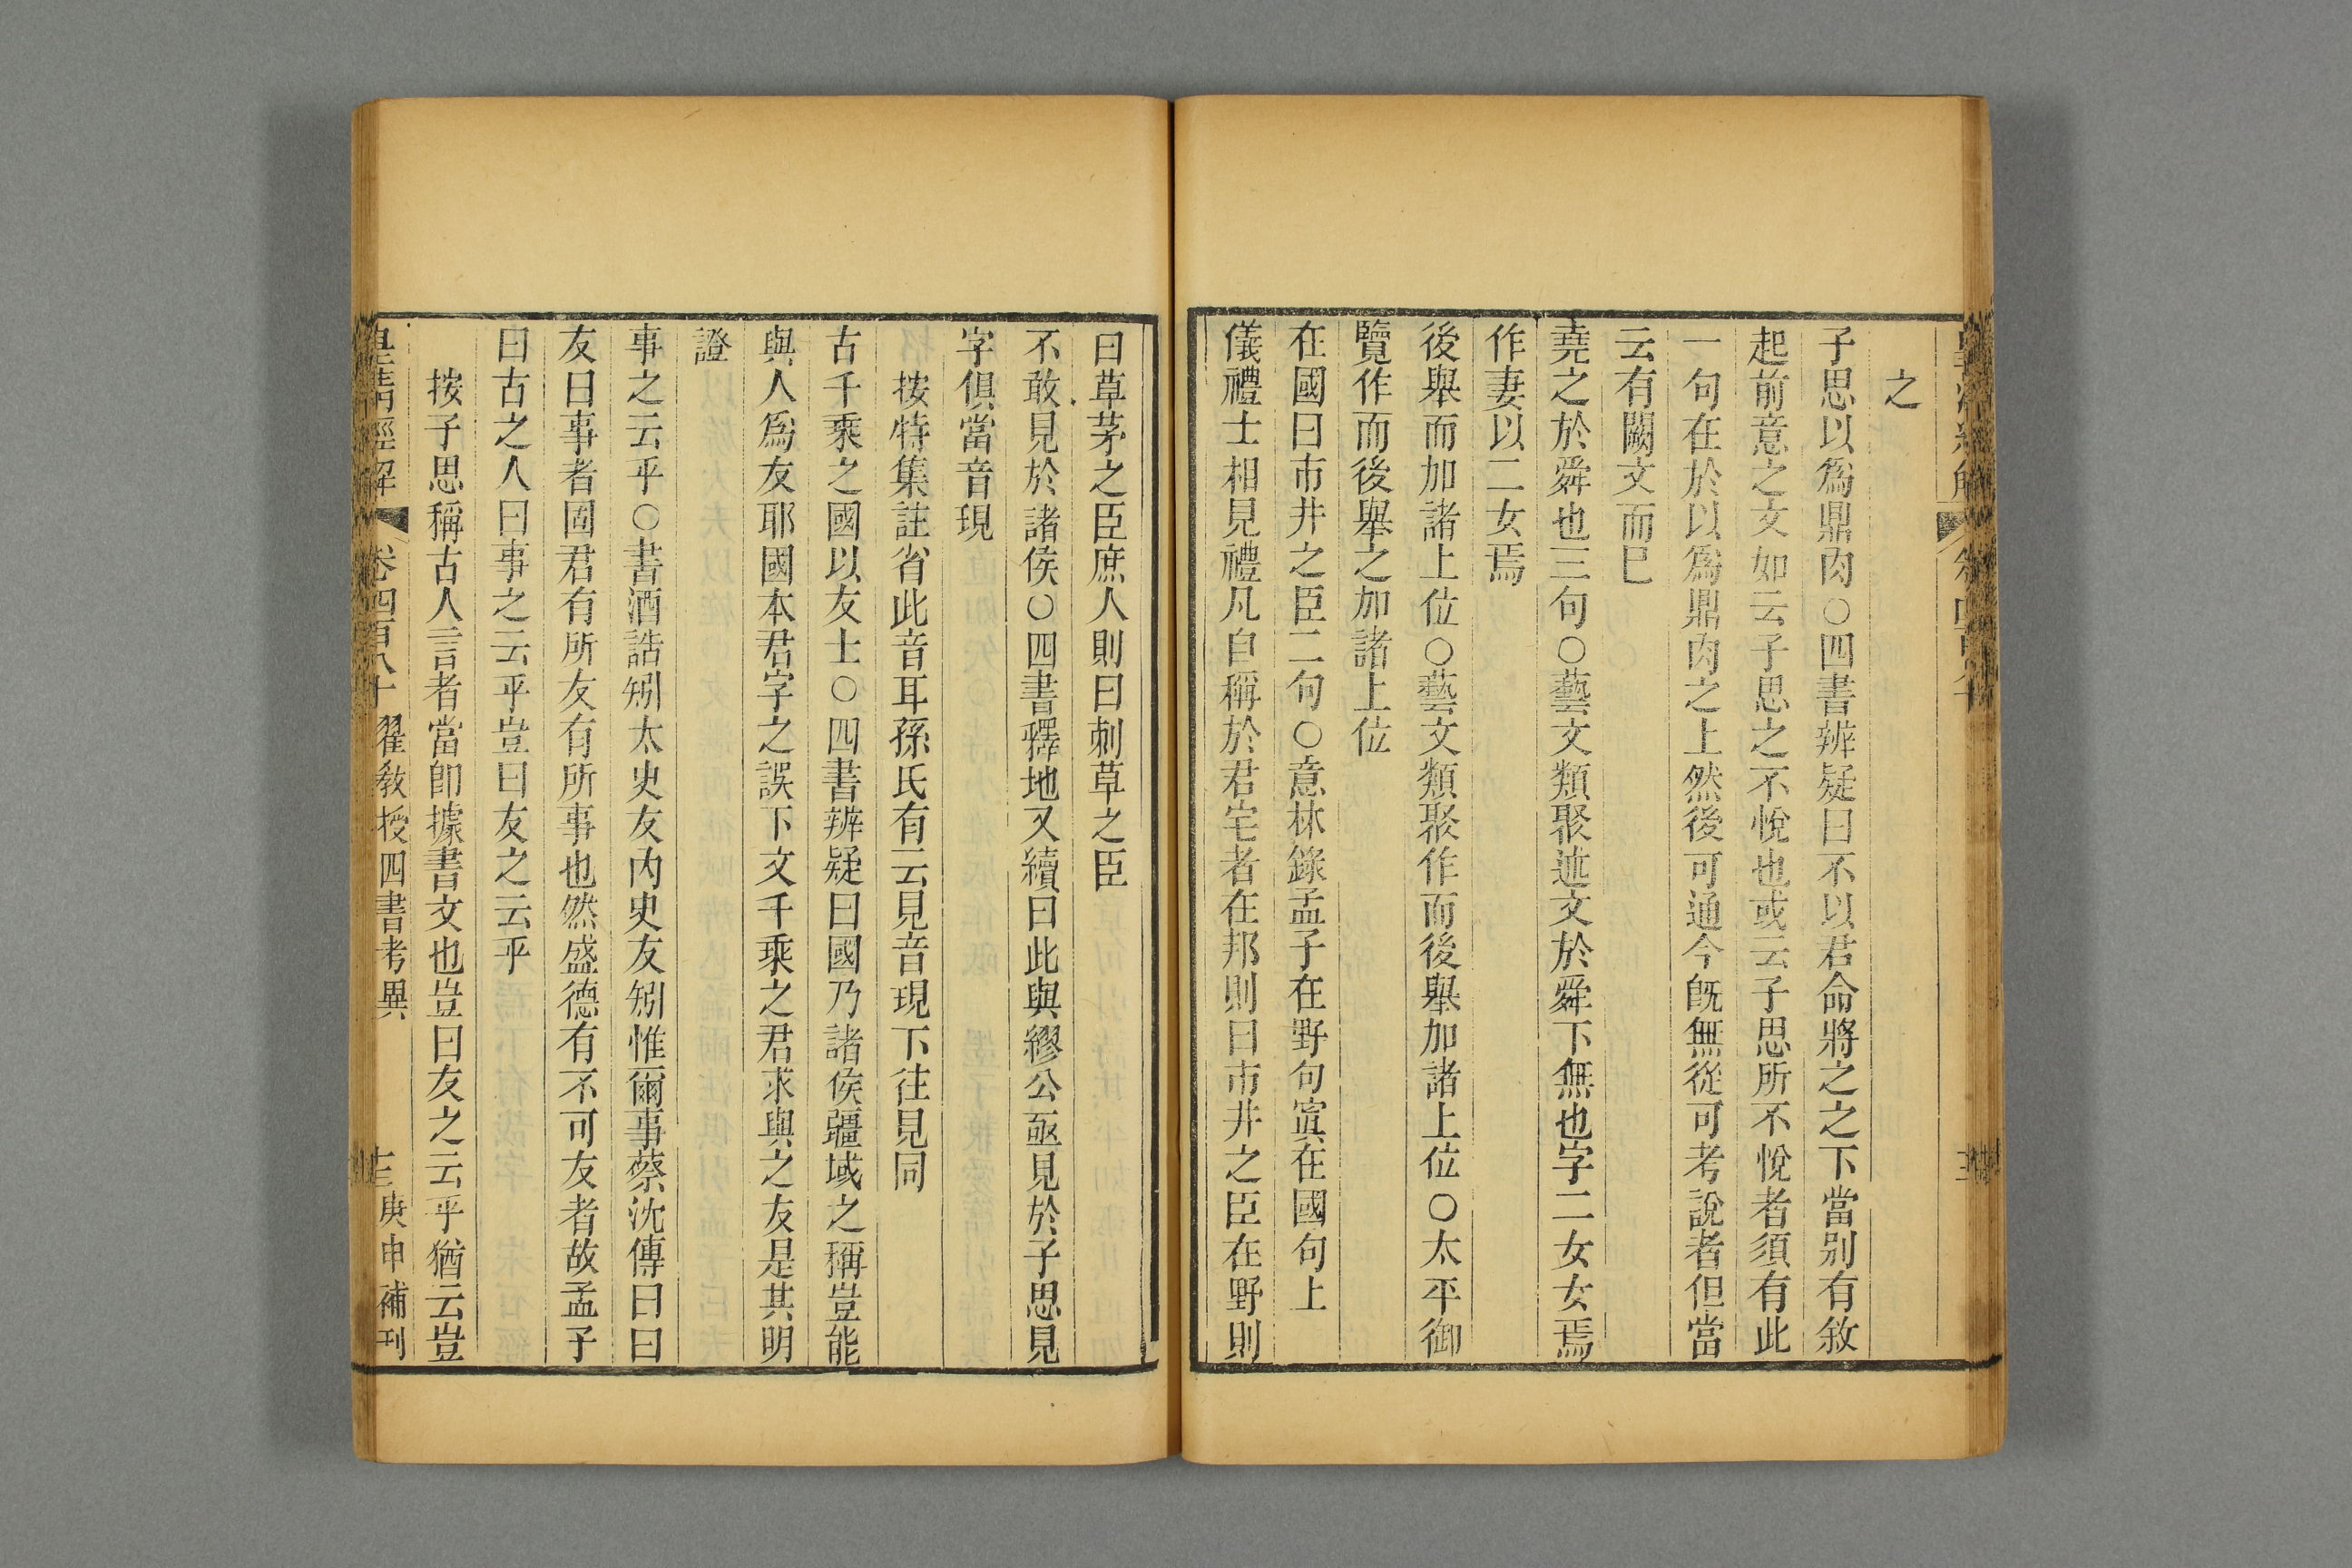 之
子思以爲鼎肉○四書辨疑曰不以君命將之之下當別有敘
起前意之文如云子思之不悅也或云子思所不悅者須有此
一句在於以爲鼎肉之上然後可通今旣無從可考說者但當
云有闕文而巳
堯之於舜也三句○藝文類聚述文於舜下無也字二女女焉
作妻以二女焉
後舉而加諸上位○藝文類聚作而後舉加諸上位○太平御
覽作而後舉之加諸上位
在國曰市井之臣二句○意林錄孟子在野句寘在國句上
儀禮士相見禮凡自稱於君宅者在邦則曰市井之臣在野則
曰草茅之臣庶人則曰刺草之臣
不敢見於諸侯○四書釋地又續曰此與繆公亟見於子思見
字俱當音現
按特集註省此音耳孫氏有云見音現下往見同
古千乘之國以友士○四書辨疑曰國乃諸侯疆域之稱豈能
與人爲友耶國本君字之誤下文千乘之君求與之友是其明
證
事之云乎○書酒誥矧太史友內史友矧惟爾事蔡沈傳曰曰
友曰事者國君有所友有所事也然盛德有不可友者故孟子
曰古之人曰事之云乎豈曰友之云乎
按子思稱古人言者當卽據書文也豈曰友之云乎猶云豈
皇淸經解 卷四百八十 翟敎授四書考異 十三 庚申補刊